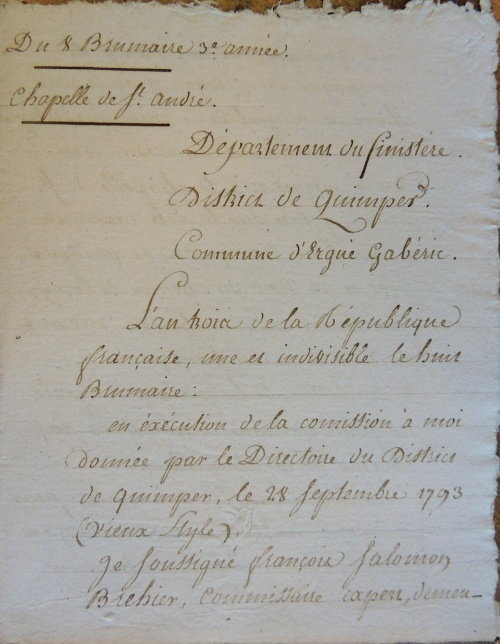 Du 8 Brumaire 3e année.
Chapelle de St. André.
Département du finistère.
District de Quimper.
Commune d'Ergué Gabéric.
L'an trois de la République
française, une et indivisible le huit
Brumaire:
en éxécution de la comission à moi
donnée par le Directoire du District
de Quimper, le 28 Septembre 1793
(vieux Style).
Je Soussigné françois Salomon
Brehier, Commissaire expert, demeu-